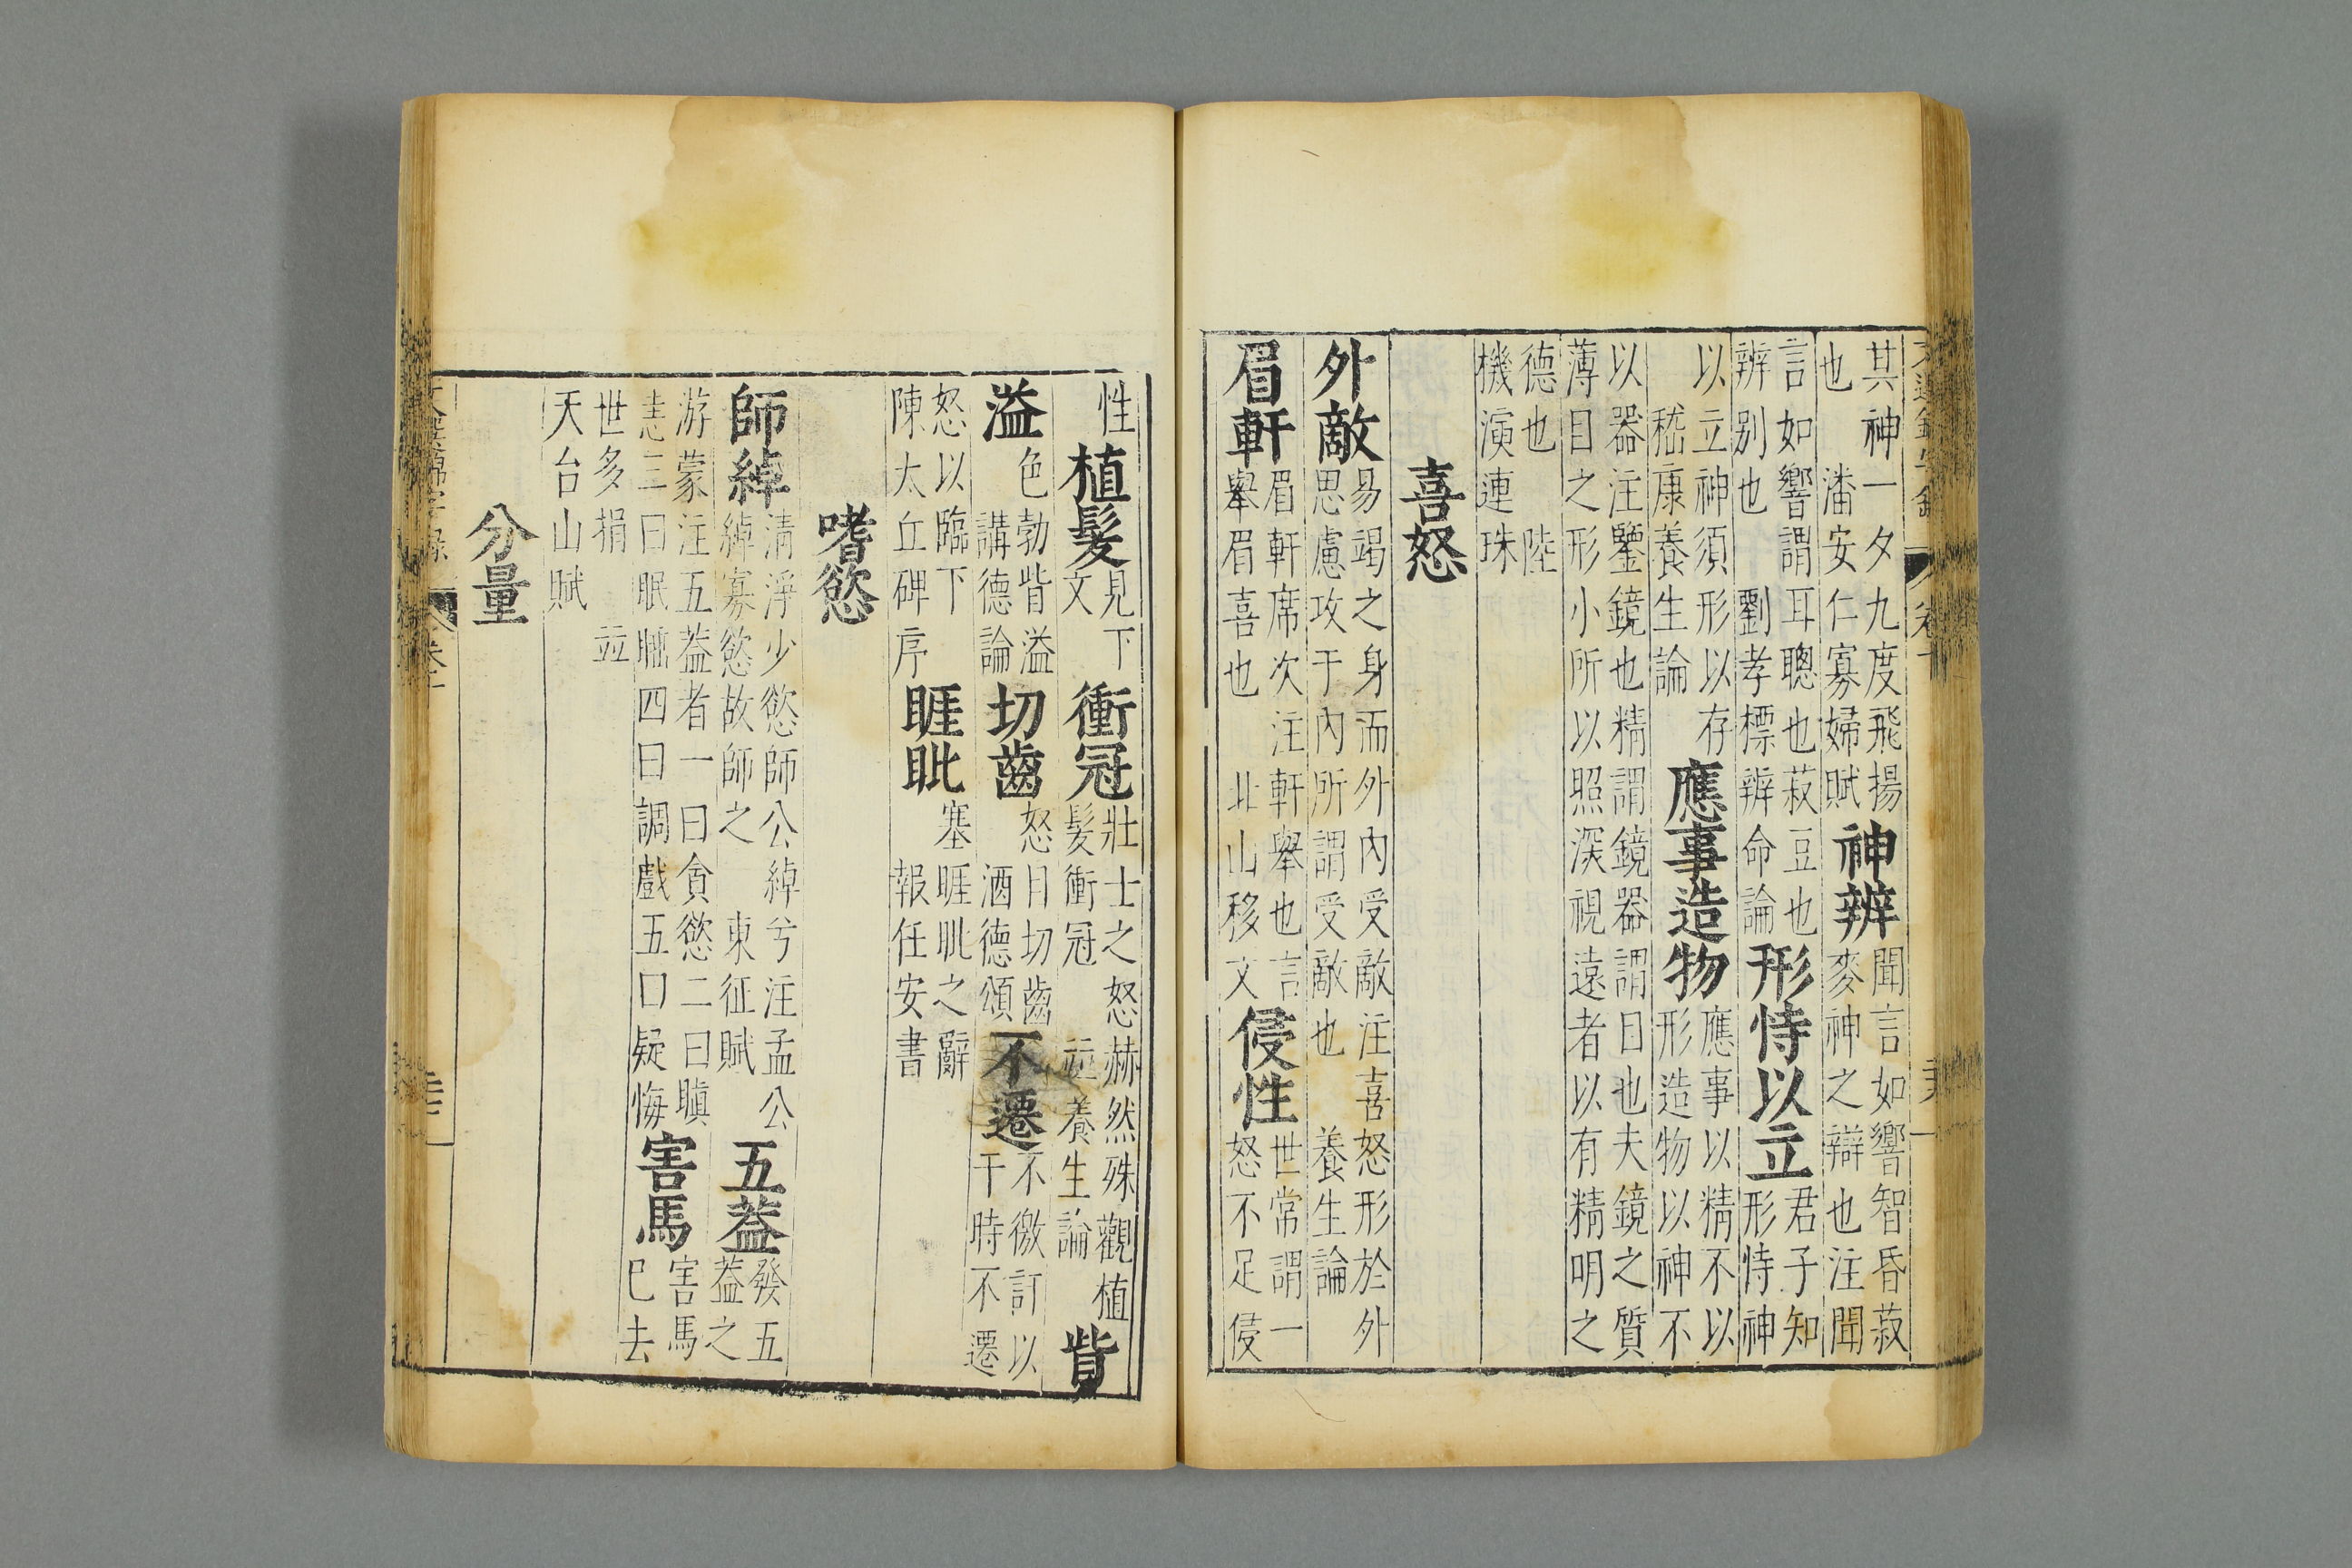 其神一夕九度飛揚
也　潘安仁寡婦賦
神辨
聞言如響智昏菽
麥神之辯也注聞
言如響謂耳聰也菽豆也
辨别也　劉孝標辨命論
形恃以立
君子知
形恃神
以立神須形以存
嵇康養生論
應事造物
應事以精不以
形造物以神不
以器注鑒鏡也精謂鏡器謂目也夫鏡之質
薄目之形小所以照深視遠者以有精明之
德也　陸
機演連珠
喜怒
外敵
易竭之身而外內受敵注喜怒形於外
思慮攻于內所謂受敵也　養生論
眉軒
眉軒席次注軒舉也言
舉眉喜也　北山移文
侵性
世常謂一
怒不足侵
性
植髮
見下
文
衝冠
壯士之怒赫然殊觀植
髮衝冠　並養生論
眥
溢
色勃眥溢
講德論
切齒
怒目切齒
酒德頌
不遷
不徵訂以
干時不遷
怒以臨下
陳太丘碑序
睚眦
塞睚眦之辭
報任安書
嗜慾
師綽
清淨少慾師公綽兮注孟公
綽寡慾故師之　東征賦
五葢
發五
葢之
游蒙注五葢者一曰貪慾二曰瞋
恚三曰眠睡四曰調戲五曰疑悔
害馬
害馬
已去
世多捐　並
天台山賦
分量